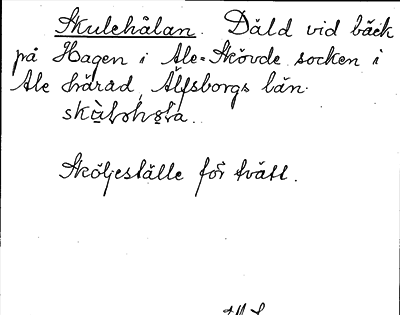 Skulehålan. Däld vid bäck
på Hagen i Ale-Skövde socken i
Ale härad, Älfsborgs län.

Sköljeställe för tvätt.